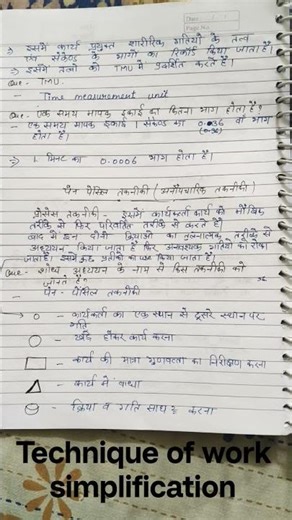 ⇒ इसमें कार्य प्रयुक्त शारीरिक गतियों के तत्व
एवं सेकेण्ड के भागों का रिकॉर्ड किया जाता है।
⇒ इसमें तत्वों को TMU में प्रदर्शित करते है।
Que. TMU -
- Time measurement unit
Que - एक समय मापक इकाई का कितना भाग होता है?
- एक समय मापक इकाई 1 सेकण्ड का 0.036 वां भाग
होता है।
⇒ 1 मिनट का 0.0006 भाग होता है।
पैन पेंसिल तकनीकी (अनौपचारिक तकनीकी)
प्रोसेस तकनीकी - इसमें कार्यकर्ता कार्य को मौखिक
तरीके से फिर परिवर्तित तरीके से करते हैं।
बाद में इन दोनों क्रियाओं का तुलनात्मक तरीके से
अध्ययन किया जाता है फिर अनावश्यक गतियों को रोका
जाता है। इसमें
किया जाता है।
Que - शोध अध्ययन के नाम से किस तकनीकी को
जानते हैं?
- पैन पेंसिल तकनीकी
→ ○ - कार्यकर्ता का एक स्थान से दूसरे स्थान पर
गति
○ - खड़े होकर कार्य करना
□ - कार्य की मात्रा गुणवत्ता का निरीक्षण करना
△ - कार्य में बाधा
- क्रिया व गति साथ करना
Technique of work
simplification